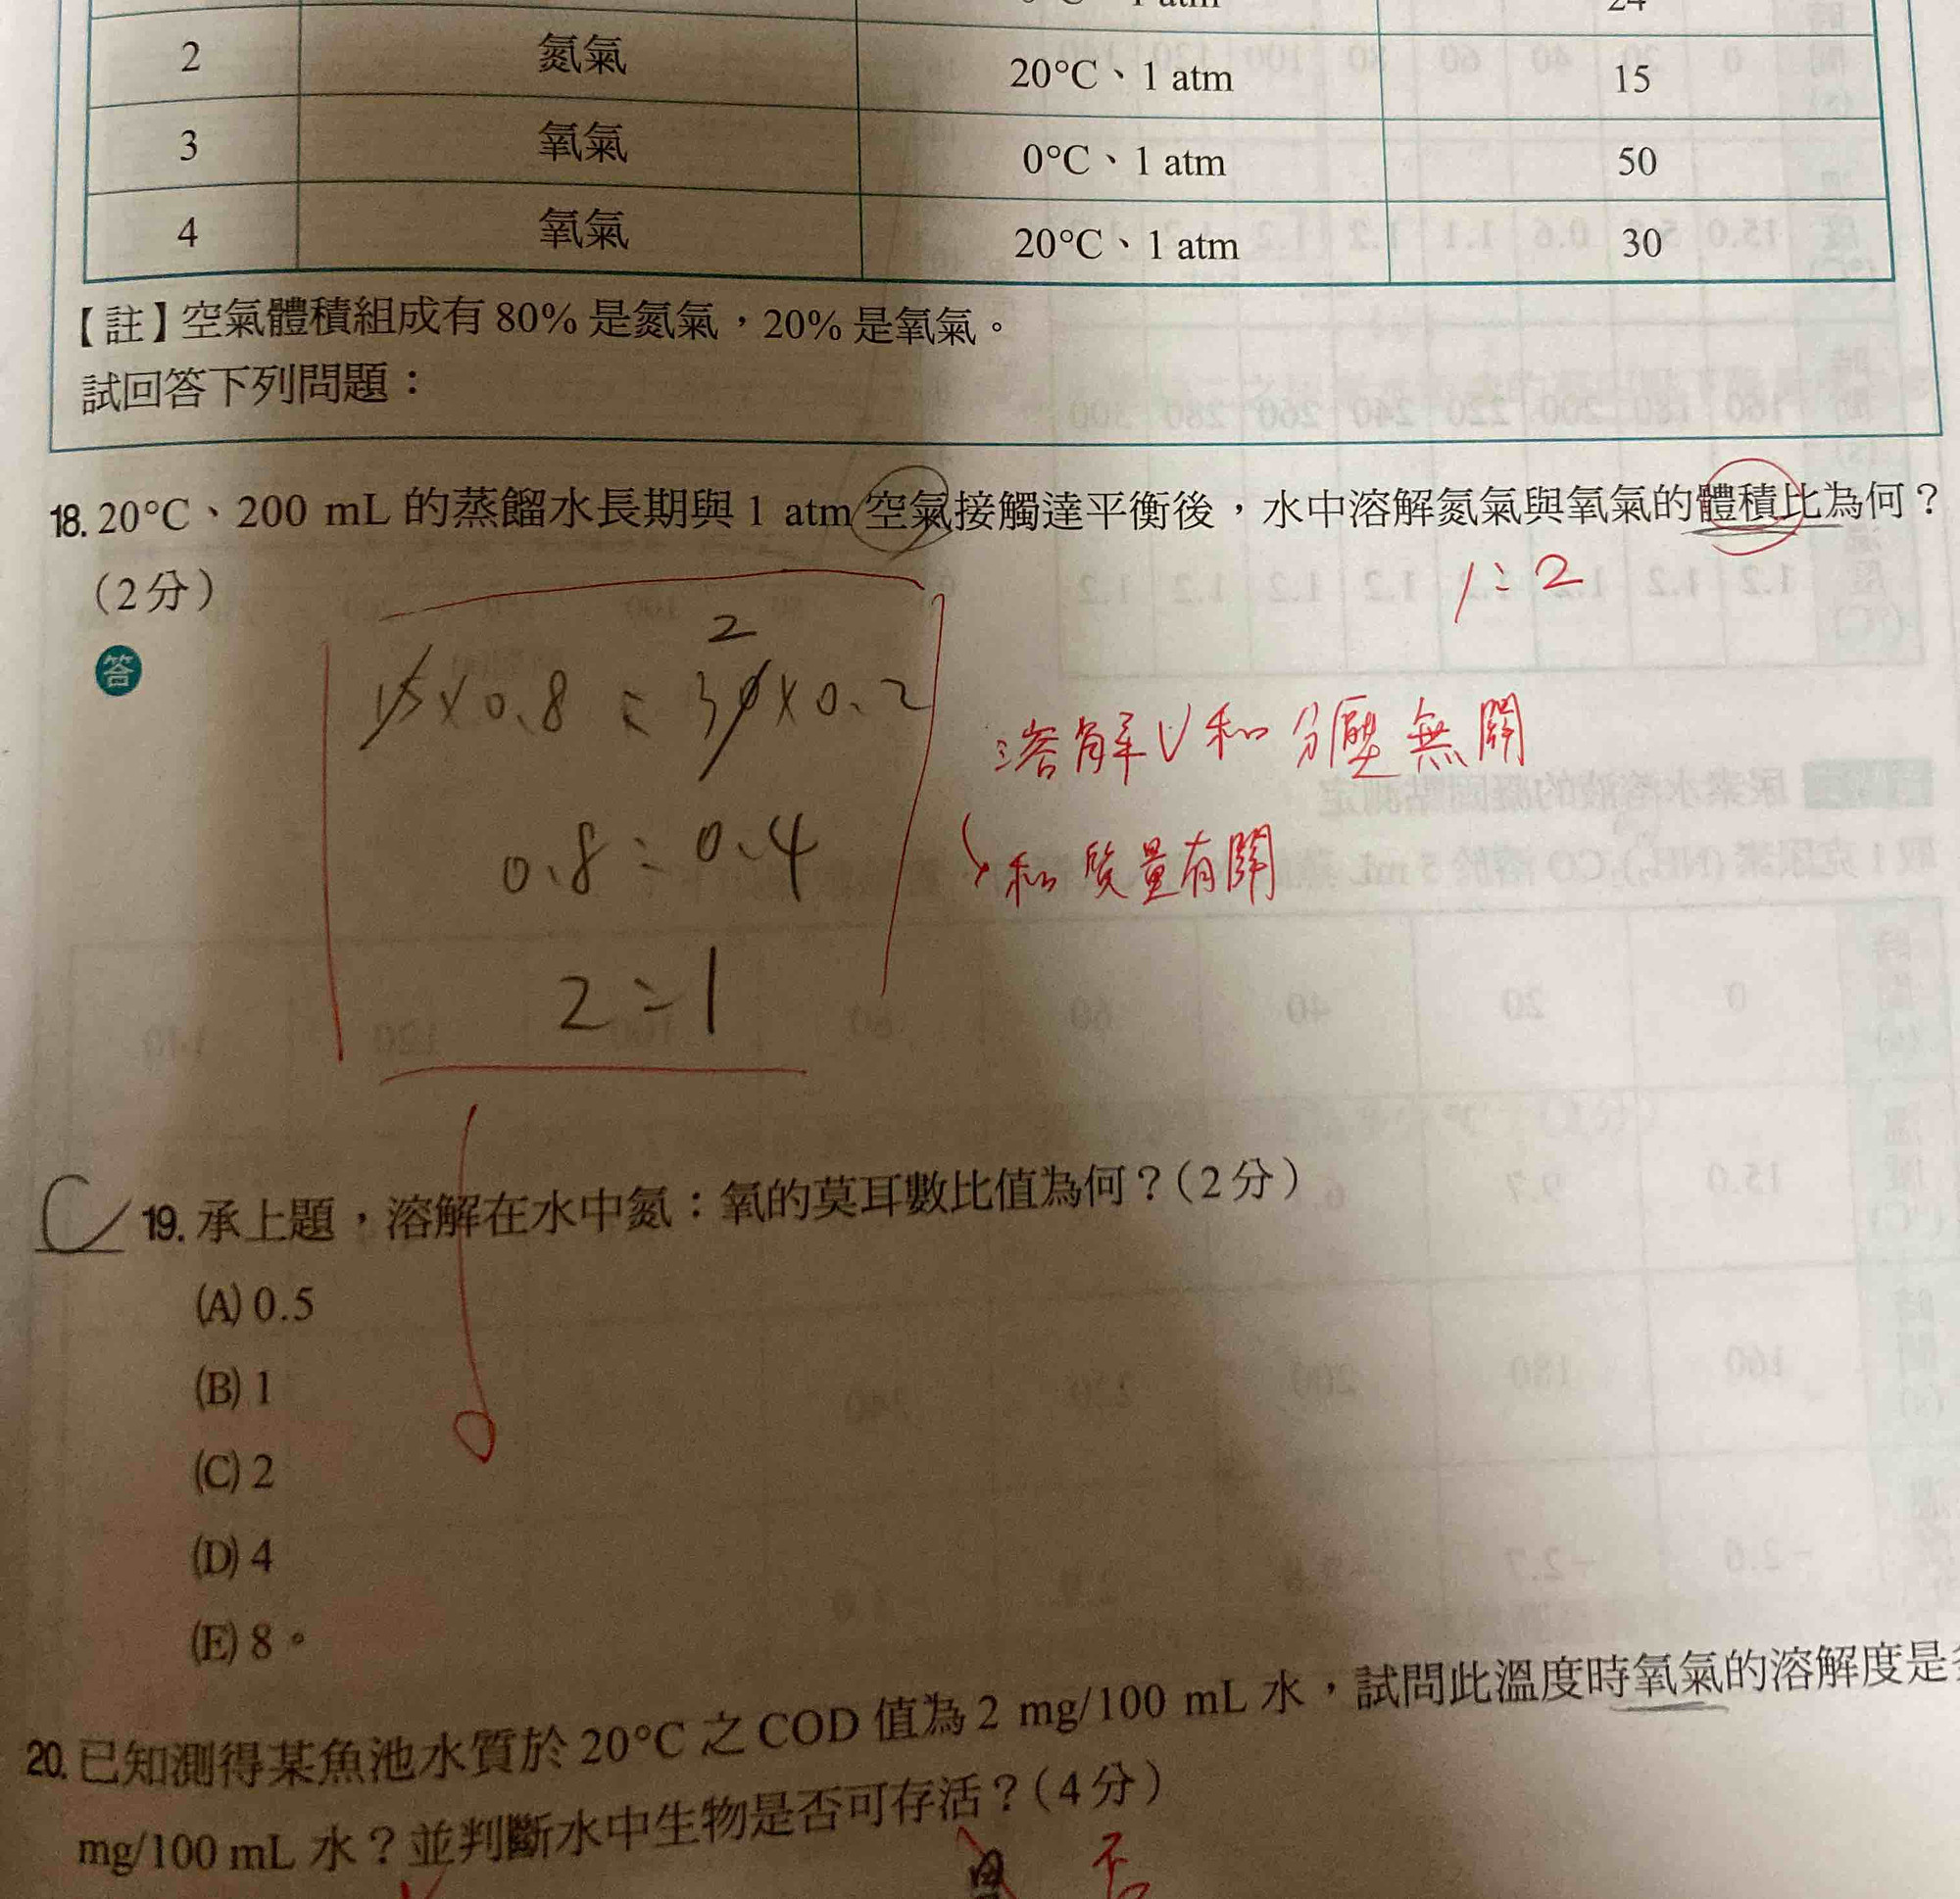 24
2 氮氣 20°C、1 atm 15
3 氧氣 0°C、1 atm 50
4 氧氣 20°C、1 atm 30
【註】空氣體積組成有 80% 是氮氣，20% 是氧氣。
試回答下列問題：
18. 20°C、200 mL 的蒸餾水長期與 1 atm 空氣接觸達平衡後，水中溶解氮氣與氧氣的體積比為何？
（2分）
1:2
答
2
15×0.8 : 30×0.2
溶解V和分壓無關
0.8 : 0.4
和質量有關
2:1
C 19. 承上題，溶解在水中氮：氧的莫耳數比值為何？（2分）
(A) 0.5
(B) 1
(C) 2
(D) 4
(E) 8。
20. 已知測得某魚池水質於 20°C 之 COD 值為 2 mg/100 mL 水，試問此溫度時氧氣的溶解度是
mg/100 mL 水？並判斷水中生物是否可存活？（4分）
否